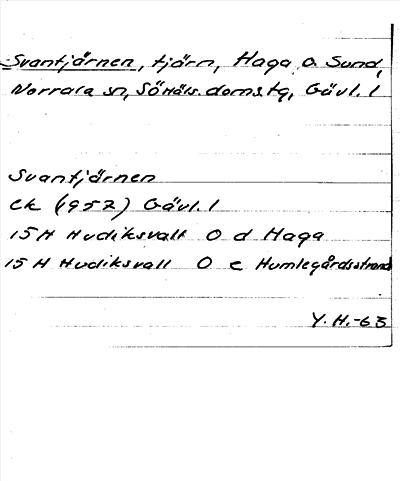 Svantjärnen, tjärn, Haga o. Sund,
Norrala sn, S. Häls. doms.tg, Gävl. l
Svantjärnen
ek (1952) Gävl. l
15 H Hudiksvall O d Haga
15 H Hudiksvall O e Humlegårdsstrand
Y. H.-63